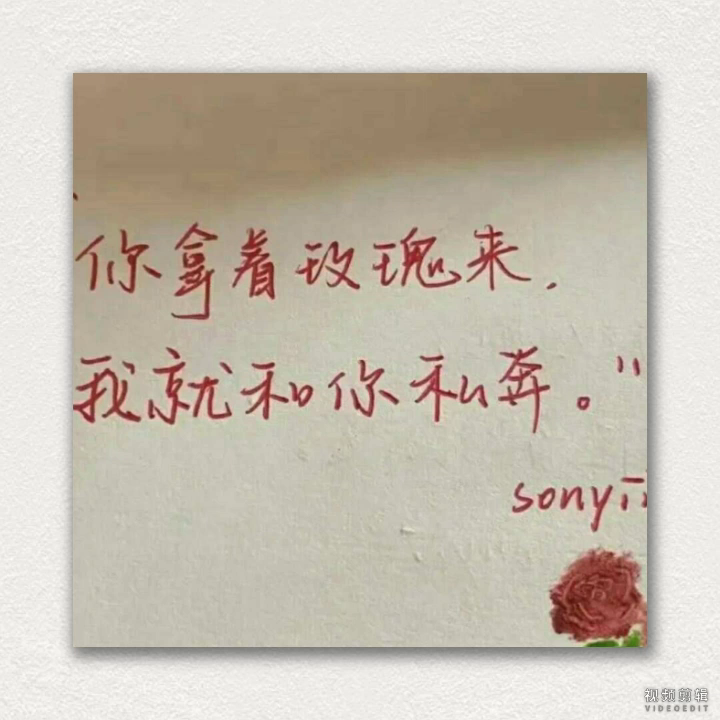 你拿着玫瑰来,
我就和你私奔。"
sonyii
视频剪辑
VIDEOEDIT